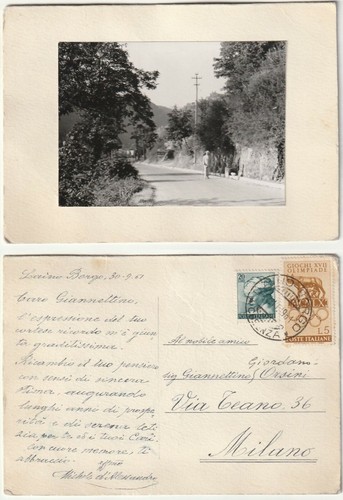 Borgo, 30-9-61
Caro Giannettino,
l'espressione del tuo
cortese ricordo mi è giunta
graditissima.
Ricambio il tuo pensiero
con sensi di sincera
stima, augurando
lunghi anni di prospe
rità e di serena leti
zia, per te ed i tuoi Cari.
Con cuore memore, ti
abbraccio.
Michele d'Alessandro
GIOCHI XVII
OLIMPIADE
L.5
POSTE ITALIANE
Al nobile amico
Giordano
Sig Giannettino Orsini
Via Teano, 36
Milano